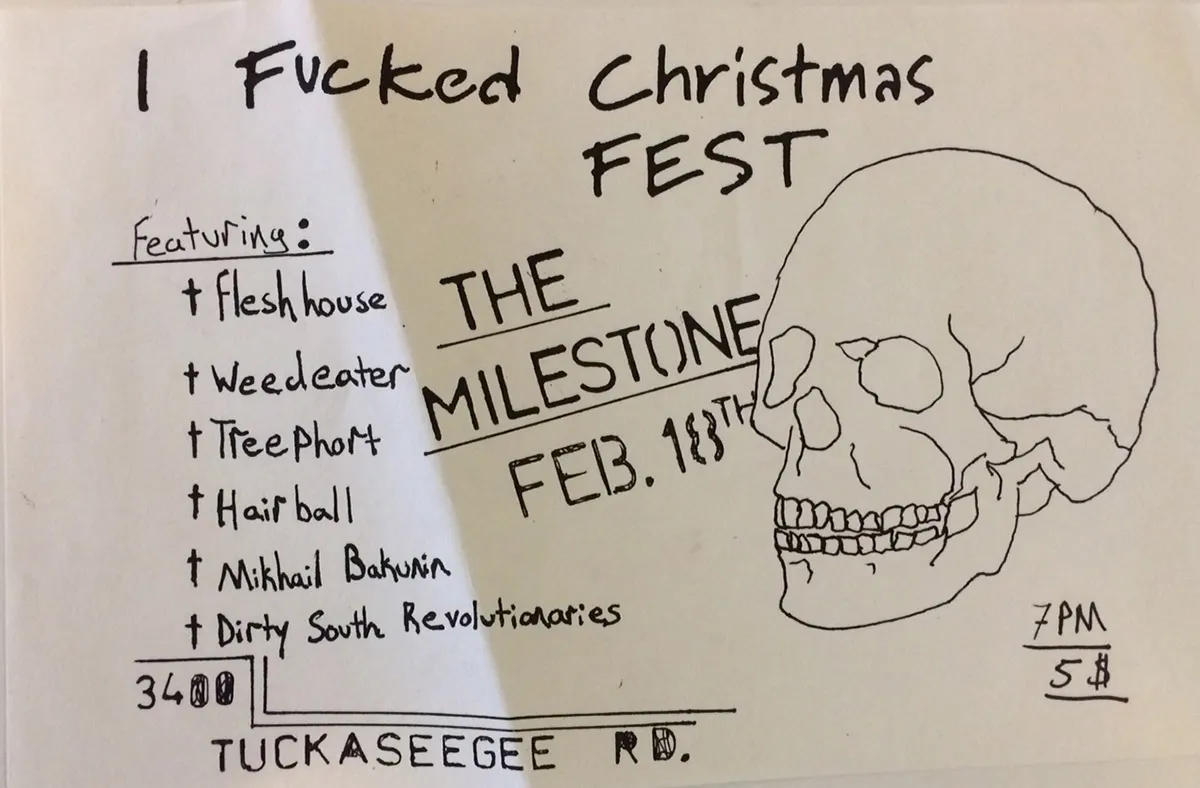 I Fucked Christmas
FEST
Featuring:
† Fleshhouse
† Weedeater
† Treephort
† Hairball
† Mikhail Bakunin
† Dirty South Revolutionaries
THE
MILESTONE
FEB. 18TH
7PM
5$
3400
TUCKASEEGEE RD.